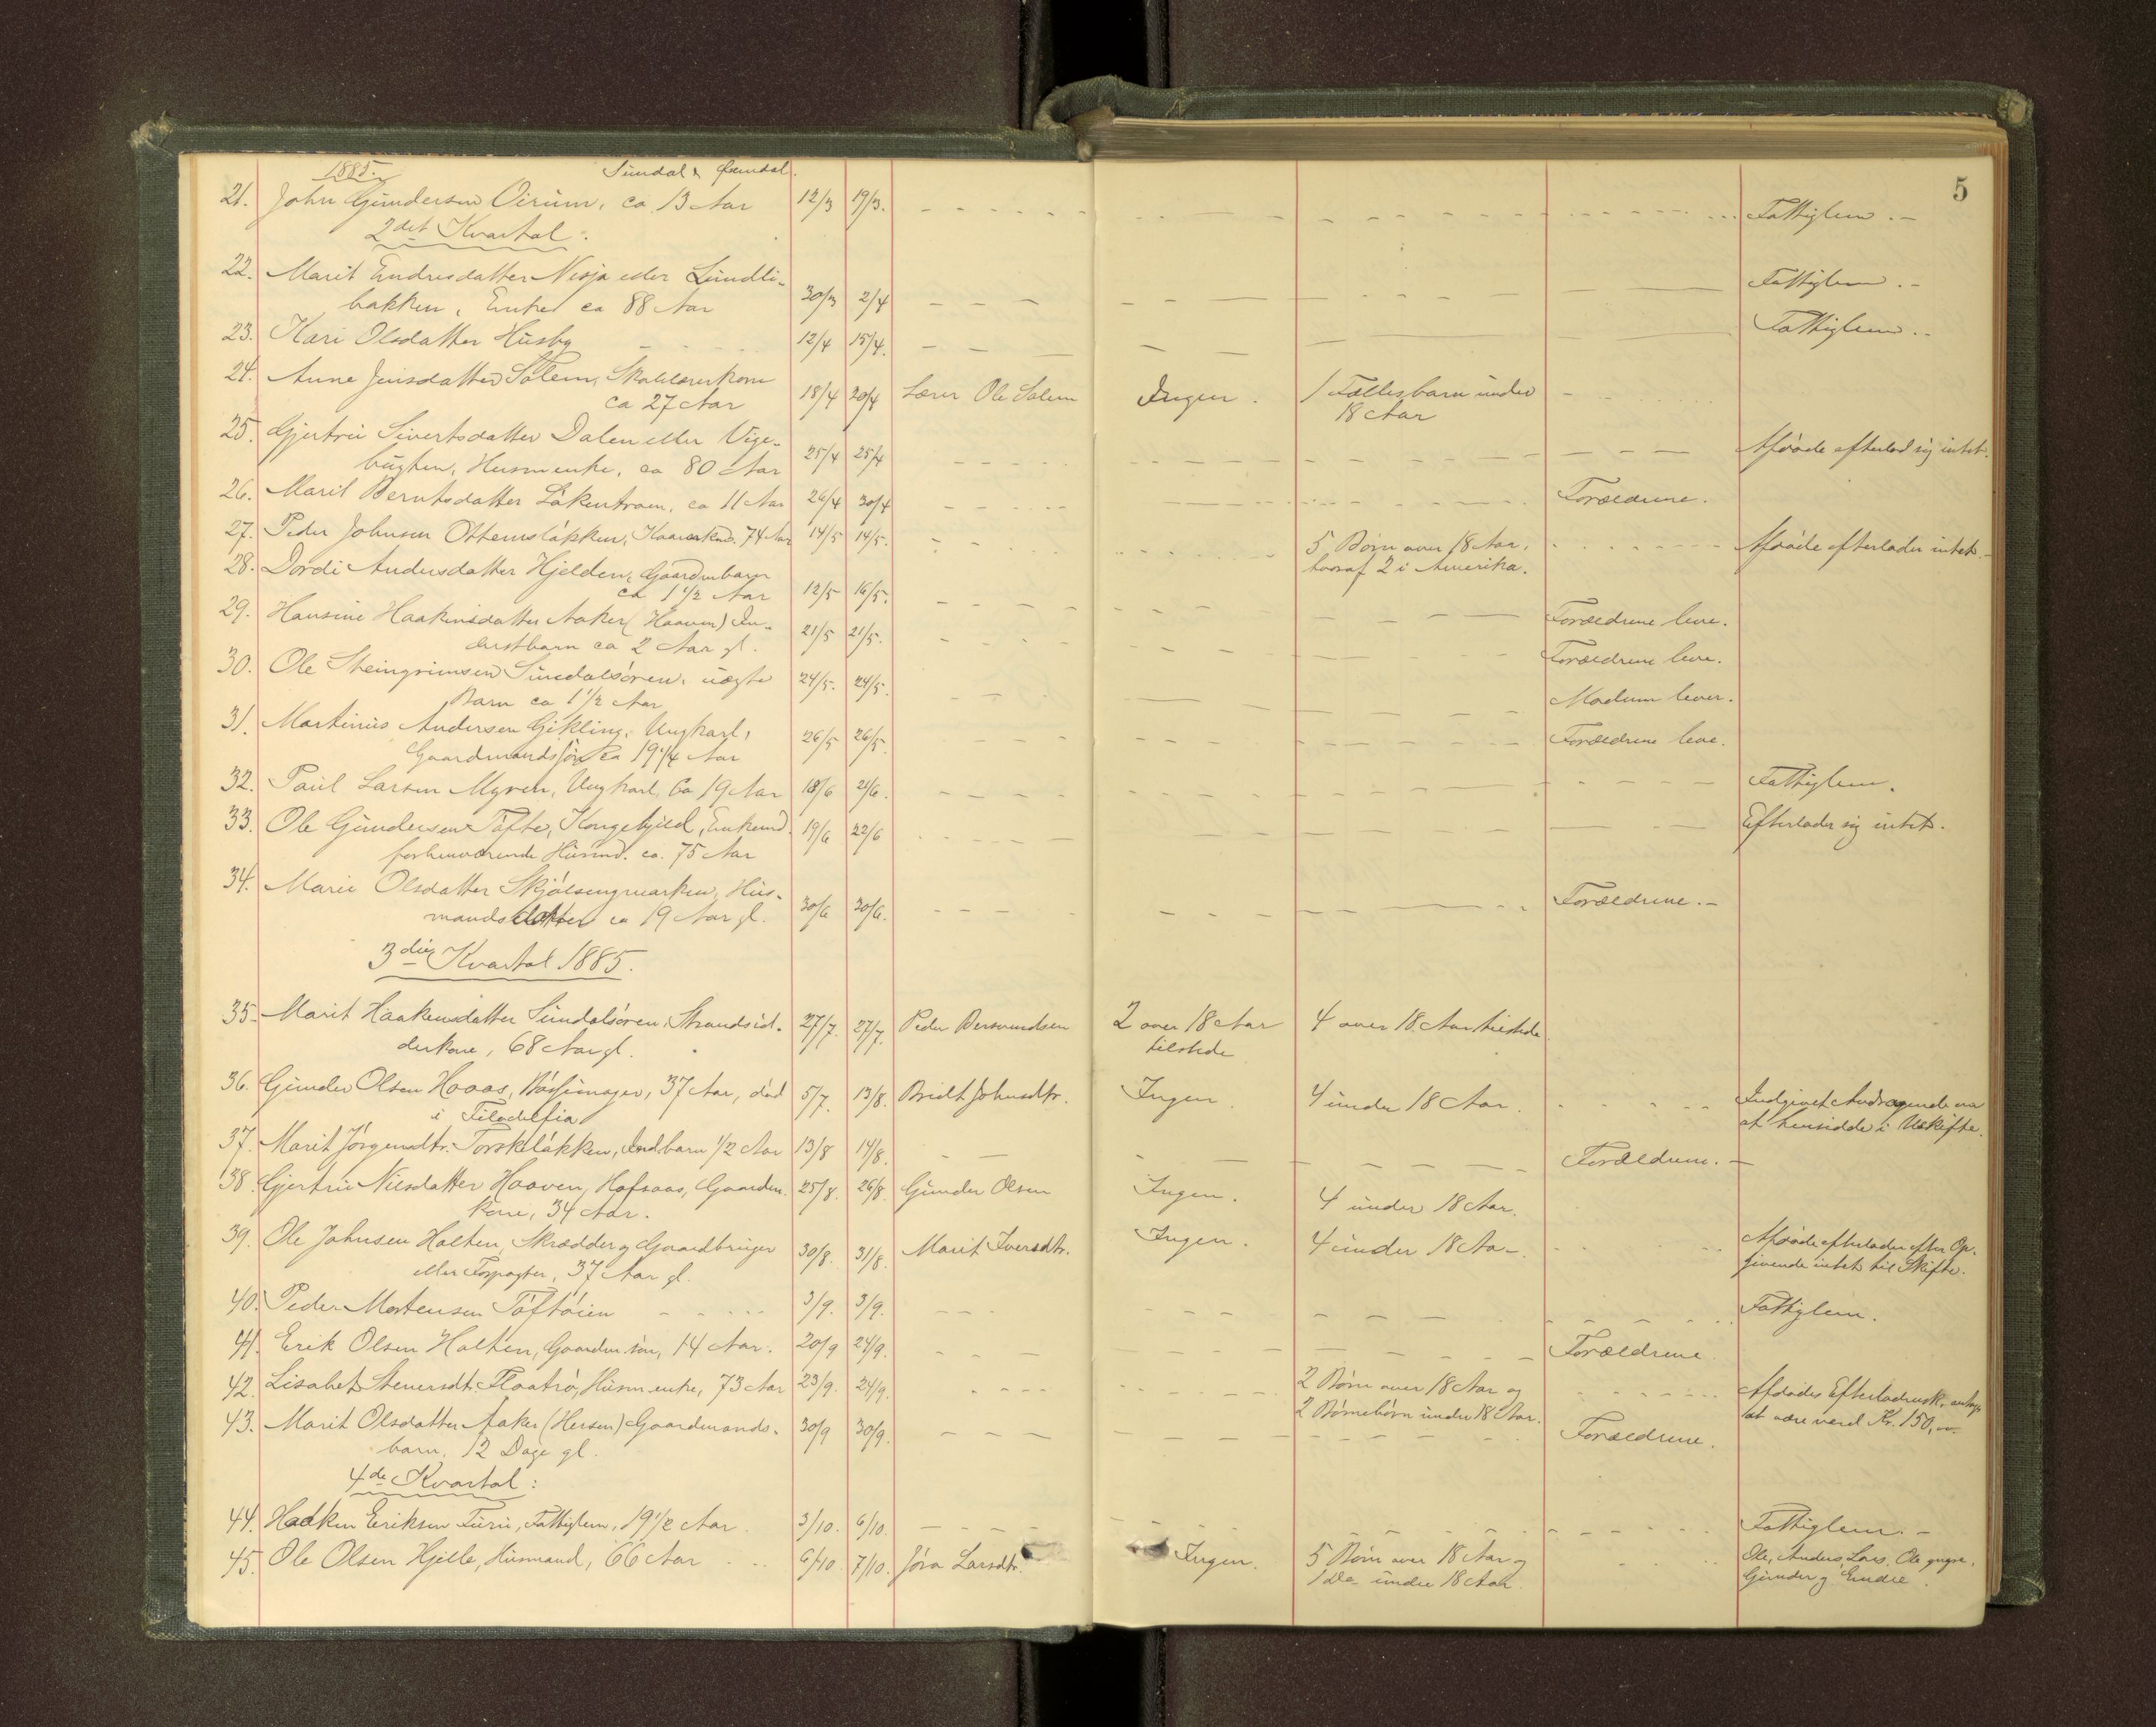 1885.
Sundal &
5
21. John Gundersen Oirum, ca 13 Aar 12/3 19/3. Fattiglem.-
2det Kvartal.
22. Marit Endresdatter Nesja eller Lundli-
bakken, Enke ca 88 Aar 30/3 2/4 Fattiglem.-
23. Kari Olsdatter Husby 12/4 15/4. Fattiglem.-
24. Anne Jensdatter Solem,
ca 27 Aar 18/4 20/4 Lærer Ole Solem Ingen. 1 Fællesbarn under
18 Aar
25. Gjertru Sivertsdatter Dalen eller Vige-
bugten, Husm enke, ca 80 Aar 25/4 25/4 Afdøde efterlod sig intet.
26. Marit Berntsdatter Løkentrøen, ca 11 Aar 26/4 30/4 Forældrene.
27. Peder Johnsen Ottemsløkken, 74 Aar 14/5 14/5. 5 Børn over 18 Aar,
hvoraf 2 i Amerika. Afdøde efterlader intet.-
28. Dordi Andersdatter Hjelden, Gaardmbarn
ca 1 1/2 Aar 12/5 16/5. Forældrene leve.
29. Hansine Haakensdatter Aaker (Haaven) In-
derstbarn ca 2 Aar gl. 21/5 21/5. Forældrene leve.
30. Ole Steingrimsen Sundalsøren, uægte
Barn ca 1 1/2 Aar 24/5. 24/5. Moderen lever.
31. Martinus Andersen Gikling, Ungkarl,
Gaardmandssøn ca 19 1/4 Aar 26/5 26/5. Forældrene leve.
32. Paul Larsen Myren, Ungkarl, Ca 19 Aar 18/6 21/6. Fattiglem.
33. Ole Gundersen Tøfte, Enkemd.
forhenværende Husmd. ca. 75 Aar 19/6 22/6 Efterlader sig intet.
34. Marie Olsdatter Skjølsengmarken, Hus-
mandsdatter ca 19 Aar gl. 30/6 30/6. Forældrene.-
3die Kvartal 1885.
35. Marit Haakensdatter Sundalsøren, Strandsid-
derkone, 68 Aar gl. 27/7. 27/7. Peder Bersvendsen 2 over 18 Aar
tilstede 4 over 18 Aar tilstede
36. Gunder Olsen Hoaas, Bøssemager, 37 Aar, død
i Filadelfia 5/7. 13/8. Bridt Johnsdtr. Ingen. 4 under 18 Aar. Indgivet Andragende om
at hensidde i Uskifte.
37. Marit Jørgensdtr. Torskeløkken, Indbarn 1/2 Aar 13/8 14/8. Forældrene.-
38. Gjertru Nilsdatter Hoaven, Hofsaas, Gaardm.
kone, 34 Aar. 25/8. 26/8. Gunder Olsen Ingen. 4 under 18 Aar.
39. Ole Johnsen Holten, Skrædder og Gaardbruger
eller Forpagter, 37 Aar gl. 30/8. 31/8. Marit Iversdtr. Ingen. 4 under 18 Aar. Afdøde efterlader efter Op-
givende intet til Skifte.
40. Peder Mortensen Tøftøien 3/9. 3/9. Fattiglem.
41. Erik Olsen Holten, Gaardm. søn, 14 Aar. 20/9 24/9. Forældrene
42. Lisabet Stenersdt. Flaatrø, Husm enke, 73 Aar 23/9. 24/9. 2 Børn over 18 Aar og
2 Børnebørn under 18 Aar. Afdødes Efterladensk. antages
at være værd Kr. 150,00.
43. Marit Olsdatter Aaker (Hersen) Gaardmands-
barn, 12 Dage gl. 30/9 30/9. Forældrene.
4de Kvartal:
44. Haaken Eriksen Furu, Fattiglem, 19 1/2 Aar 3/10. 6/10. Fattiglem.-
45. Ole Olsen Hjelle, Husmand, 66 Aar 6/10 7/10. Jøra Larsdtr. Ingen. 5 Børn over 18 Aar og
1 Do under 18 Aar. Ole, Anders, Lars, Ole yngre,
Gunder og Endre.